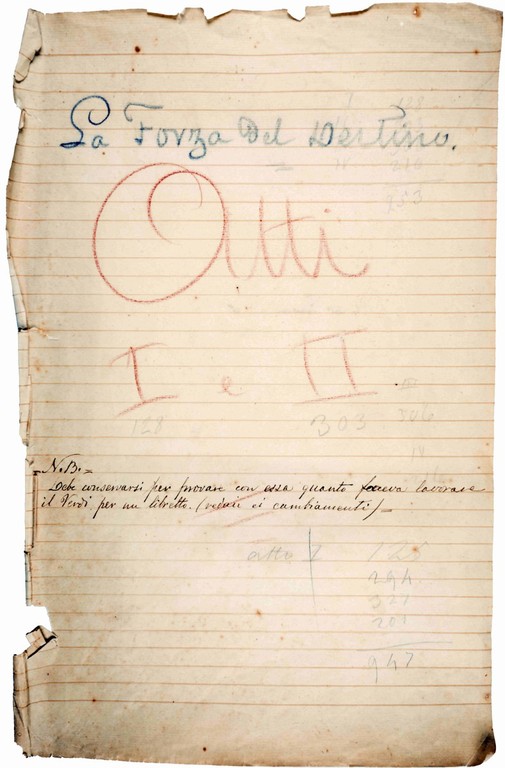 La Forza del Destino.
253
Atti
I e II
III
128 303 306
IV
N.B.=
Debe conservarsi per provare con essa quanto faceva lavorare
il Verdi per un libretto. (vedasi ei cambiamenti)=
atto I 128
294
327
201
947